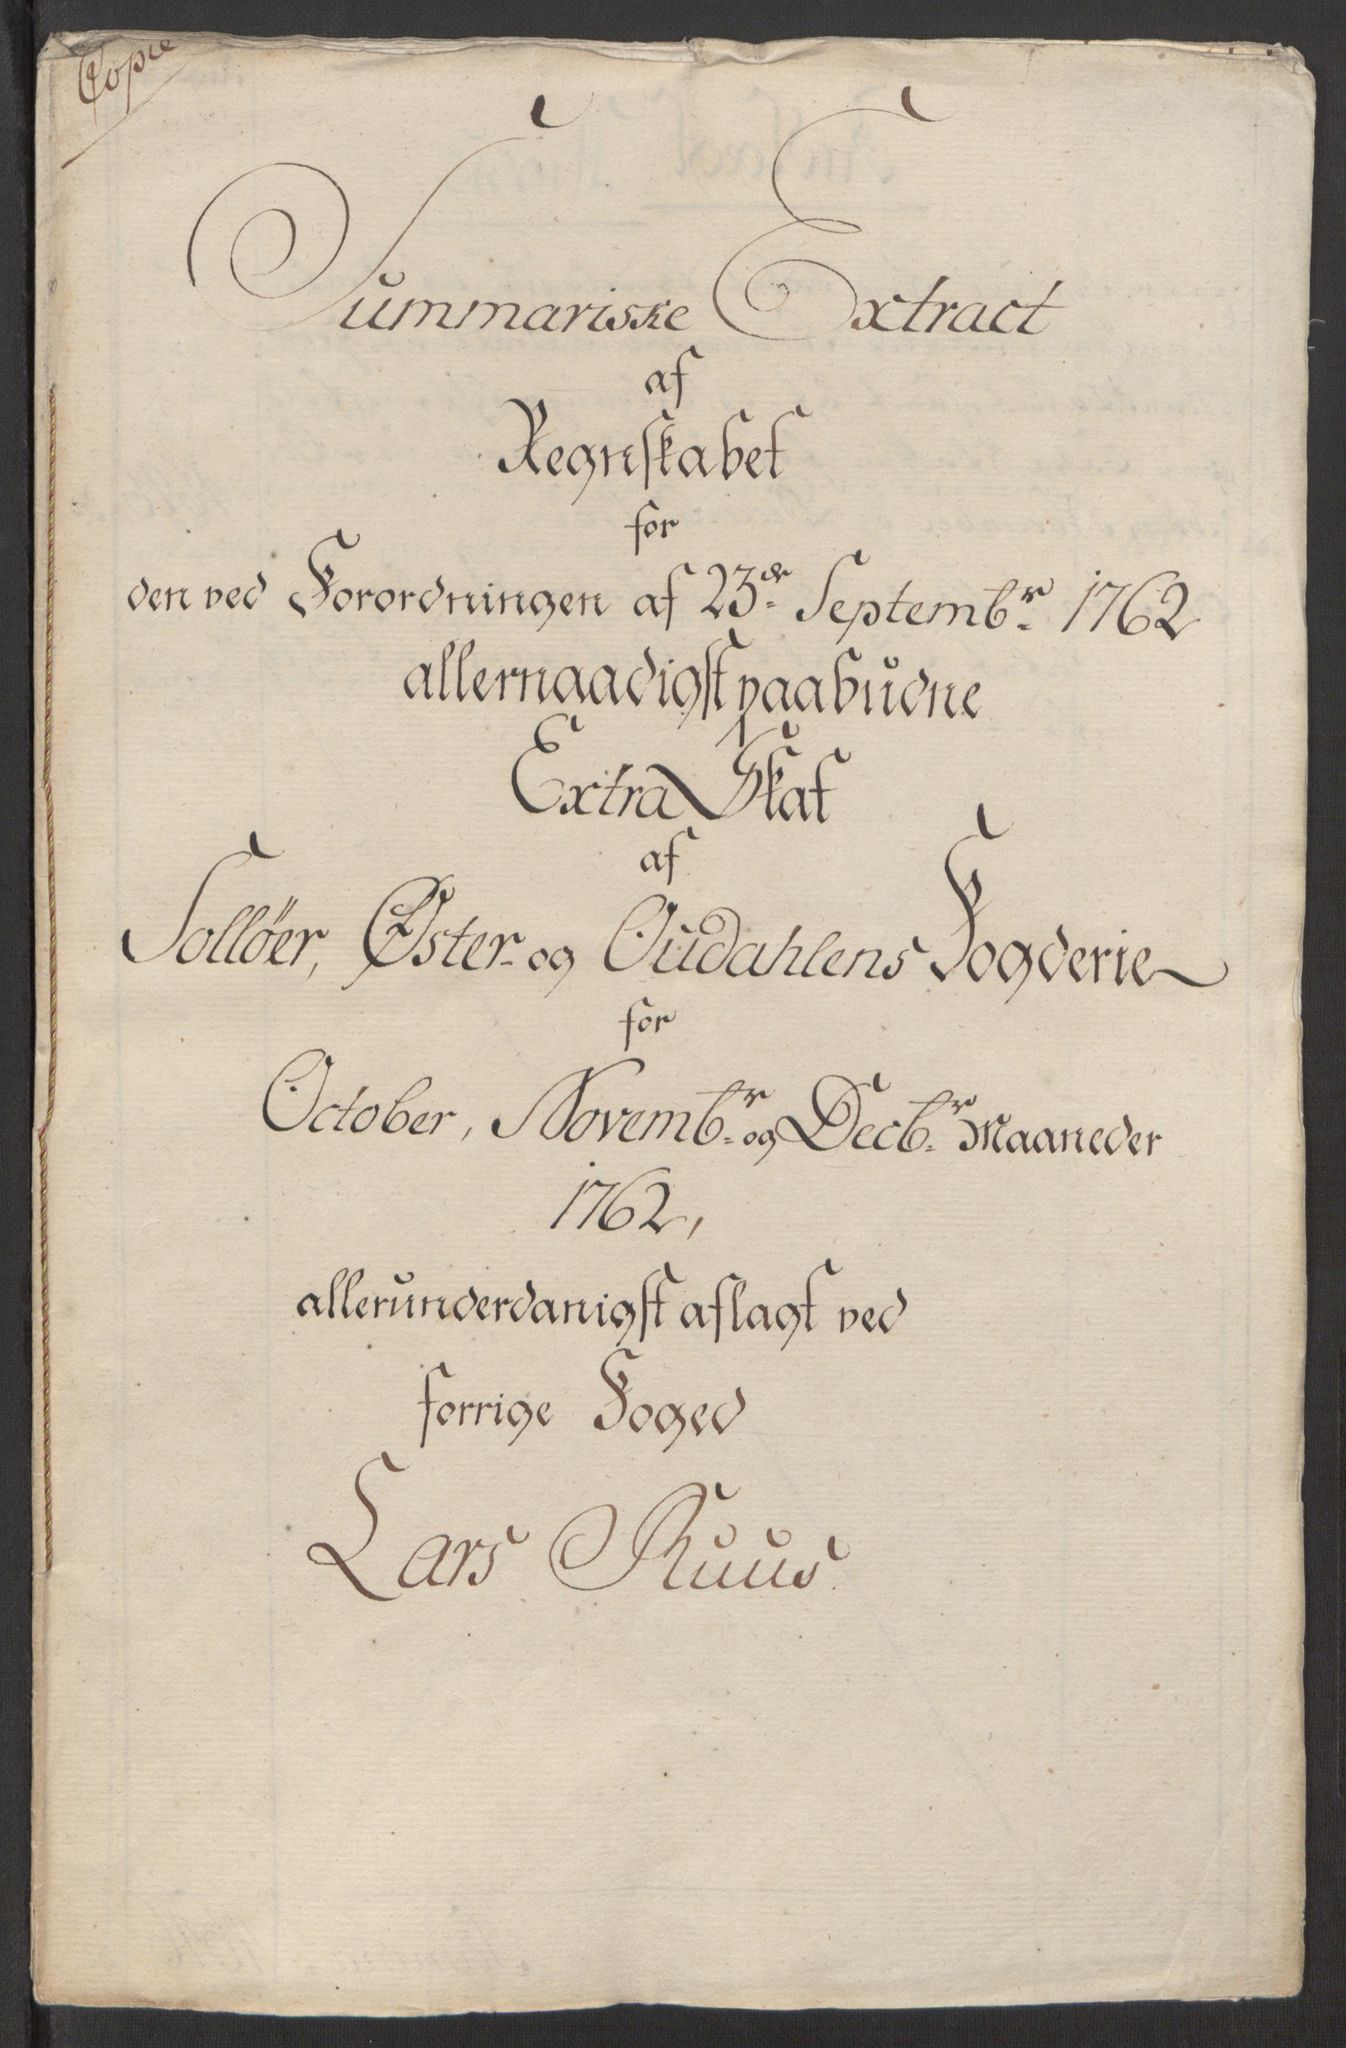 Copie
Summariske Extract
af
Regnskabet
for
den ved Forordningen af 23de Septembr 1762
allernaadigst paabudne
Extra Skat
af
Solløer, Øster- og Oudahlens Fogderie
for
October, Novembr og Decbr Maaneder
1762,
allerunderdanigst aflagt ved
forrige Foged
Lars Ruus.